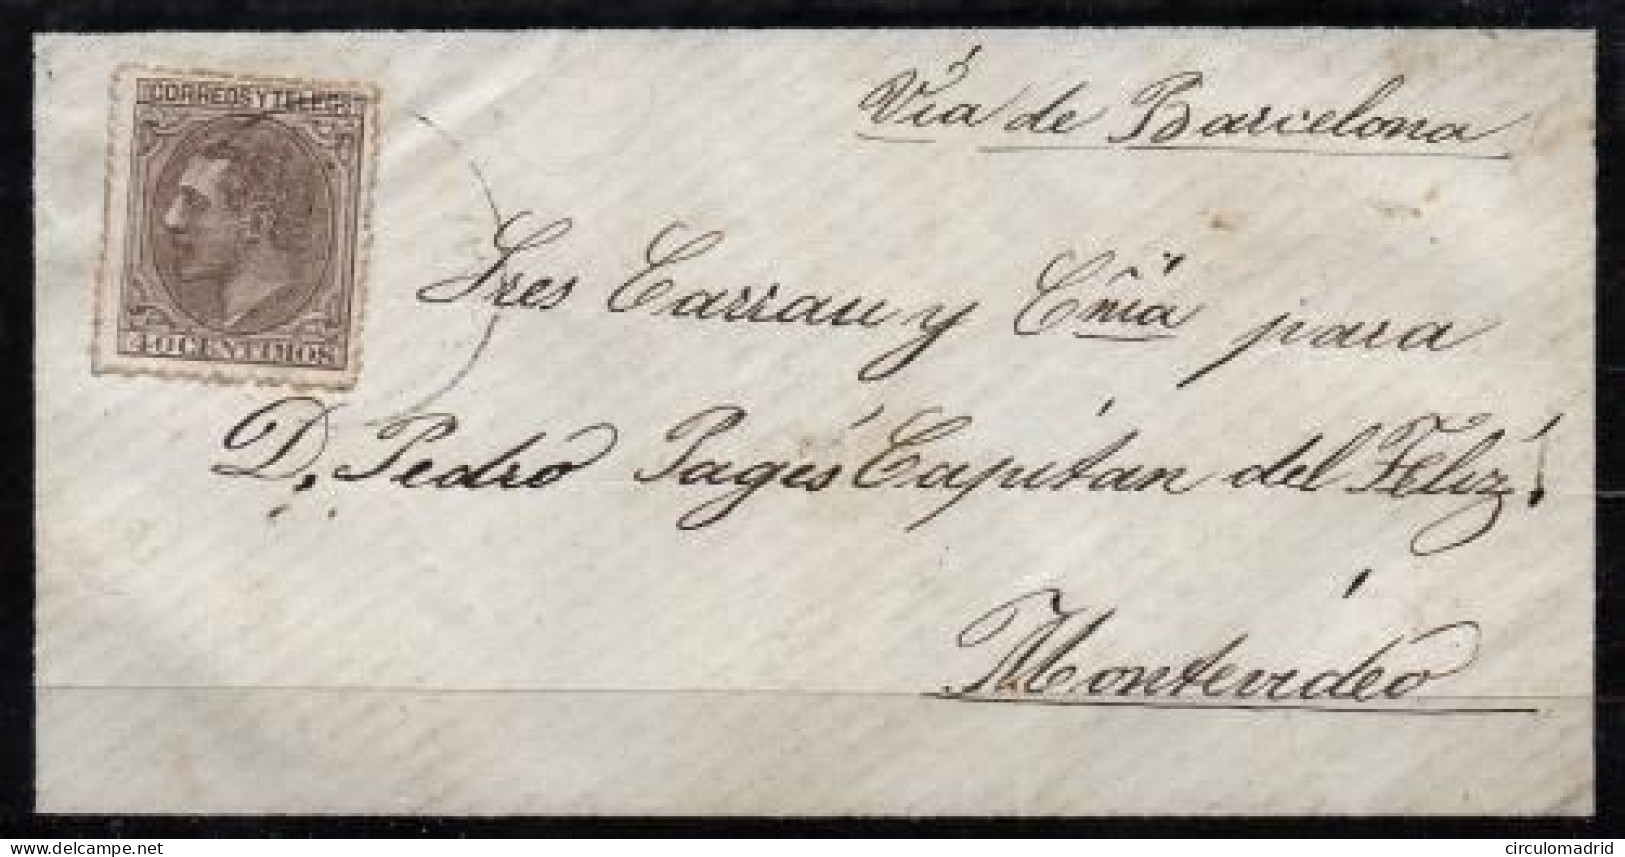 CORREOS Y TELEGS
40 CENTIMOS
Vía de Barcelona
Sres Carrau y Cñía para
D. Pedro Pagés Capitán del Feliz
Montevideo
delcampe.net
circulomadrid